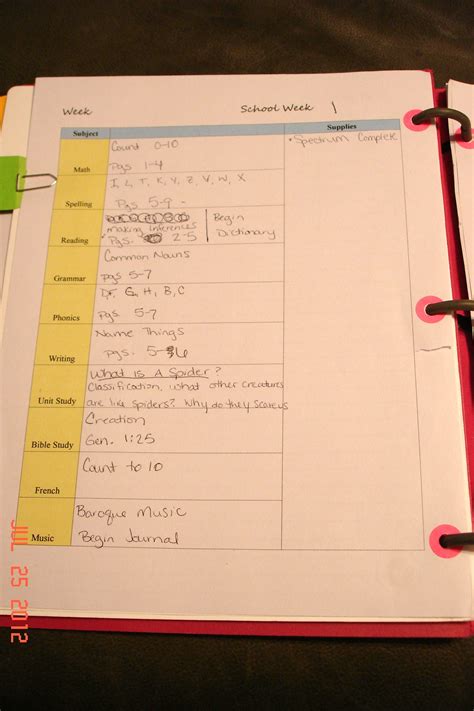 Week School Week 1
Subject Supplies
Count 0-10 • Spectrum Complete
Math Pgs 1-4
I, L, T, K, Y, Z, V, W, X
Spelling Pgs 5-9
making inferences Begin
Reading Pgs. 2-5 Dictionary
Common Nouns
Grammar pgs 5-7
G, H, B, C
Phonics pgs 5-7
Name Things
Writing pgs. 5-6
What is A Spider?
Classification, what other creatures
Unit Study are like spiders? Why do they scare us
Creation
Bible Study Gen. 1:25
Count to 10
French
Baroque Music
Music Begin Journal
JUL 25 2012